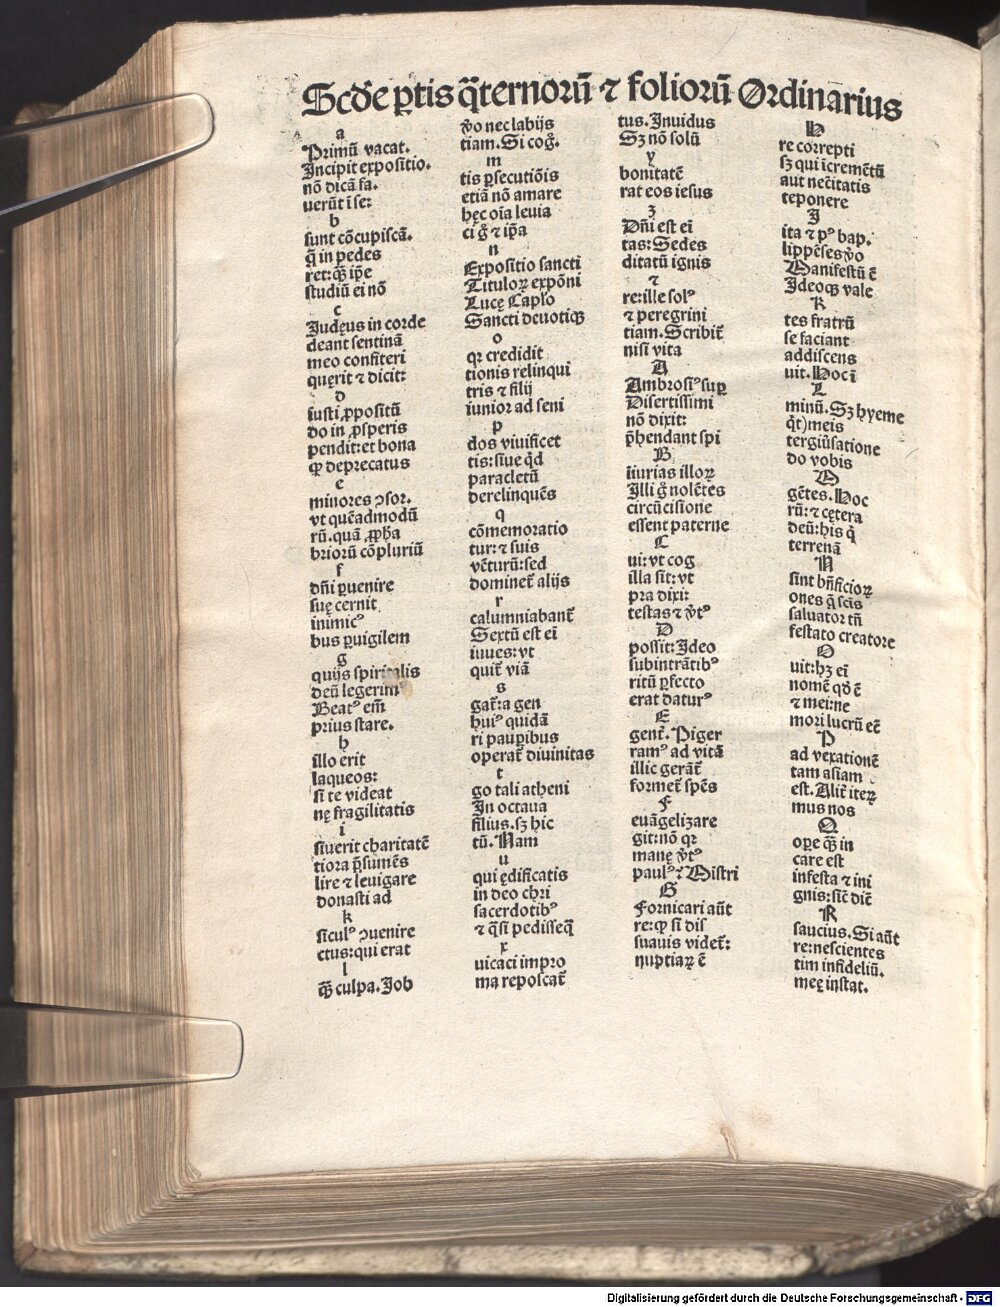 Scd̄e ꝑtis q̄ternorū ⁊ foliorū Ordinarius
a
Primū vacat.
Incipit expositio.
nō dicā fa.
uerūt ī se:
b
sunt cōcupiscā.
q̄ in pedes
ret: qꝫ̄ ip̄e
studiū ei nō
c
Judęus in corde
deant sentinā
meo confiteri
quęrit ⁊ dicit:
d
iusti ꝓpositū
do in ꝓsperis
pendit: et bona
ꝙ deprecatus
e
minores ꝯsor.
vt quēadmodū
rū. quā ꝓph̄a
briorū cōpluriū
f
dn̄i ꝑuenire
suę cernit
inimicꝰ
bus ꝑuigilem
g
quijs spiritalis
deū legerimꝰ
Beatꝰ em̄
prius stare.
h
illo erit
laqueos:
si te videat
nę fragilitatis
i
siuerit charitatē
tiora p̄sumēs
lire ⁊ leuigare
donasti ad
k
siculꝰ ꝯuenire
ctus: qui erat
l
qꝫ̄ culpa. Job
v̄o nec labijs
tiam. Si coḡ.
m
tis ꝑsecutiōis
etiā nō amare
hęc oīa leuia
ci g̊ ⁊ ip̄a
n
Expositio sancti
Tituloꝝ expōni
Lucę Capło
Sancti deuotiqꝫ
o
qꝛ credidit
tionis relinqui
tris ⁊ filij
iunior ad seni
p
dos viuificet
tis: siue q̇d
paracletū
derelinquēs
q
cōmemoratio
tur: ⁊ suis
vētūrū: sed
dominet̄ alijs
r
calumniabant̄
Sextū est ei
iuues: vt
quit̄ viā
s
gat̄: a gen
huiꝰ quidā
ri pauꝑibus
operat̄ diuinitas
t
go tali atheni
In octaua
filius. sꝫ hic
tū. Nam
u
qui ędificatis
in deo chri
sacerdotibꝰ
⁊ q̄si pedisseq̄
x
uicaci impro
ma reposcat̄
tus. Inuidus
Sꝫ nō solū
y
bonitatē
rat eos iesus
z
Dn̄i est ei
tas: Sedes
ditatū ignis
⁊
re: ille solꝰ
⁊ peregrini
tiam. Scribit̄
nisi vita
A
Ambrosiꝰ suꝑ
Disertissimi
nō dixit:
p̄hendant spi
B
iiurias illoꝝ
Illi g̊ nolētes
circūcisione
essent paterne
C
ui: vt cog
illa sit: vt
pra dixi:
testas ⁊ v̄tꝰ
D
possit: Ideo
subintrātibꝰ
ritū ꝑfecto
erat daturꝰ
E
gent̄. Piger
ramꝰ ad vitā
illic gerāt̄
formet̄ spēs
F
euāgelizare
git: nō qꝛ
manę v̄tꝰ
paulꝰ: Mistri
G
Fornicari aūt
re: ꝙ si dis
suauis videt̄:
nuptiaꝝ ē
H
re correpti
sꝫ qui īcremētū
aut nec̄itatis
teponere
I
ita ⁊ pꝰ bap.
lippēses v̄o
Manifestū ē
Ideoqꝫ vale
K
tes fratrū
se faciant
addiscens
uit. Hoc ī
L
minū. Sꝫ hyeme
q̇t) meis
tergiūsatione
do vobis
M
gētes. Hoc
rū: ⁊ cętera
deū: his q̄
terrenā
N
sint bn̄ficioꝝ
ones q̄ scis
saluator tn̄
festato creatore
O
uit: hꝫ ei
nomē qd̄ ē
⁊ mei: ne
mori lucrū eē
P
ad vexationē
tam asiam
est. Alit̄ iteꝝ
mus nos
Q
ope qꝫ̄ in
care est
infesta ⁊ ini
gnis: sic̄ dic̄
R
saucius. Si aūt
re: nescientes
tim infideliū.
meꝝ instat.
Digitalisierung gefördert durch die Deutsche Forschungsgemeinschaft - DFG